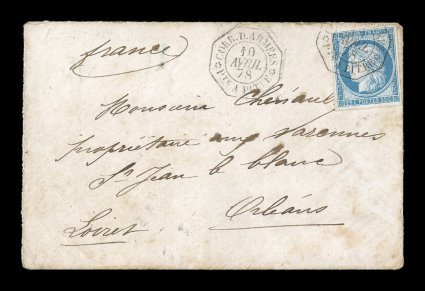 france
CORR. D. ARMÉES
10
AVRIL
78
Monsieur Cheriault
propriétaire aux Varennes
St Jean le blanc
Orléans
Loiret